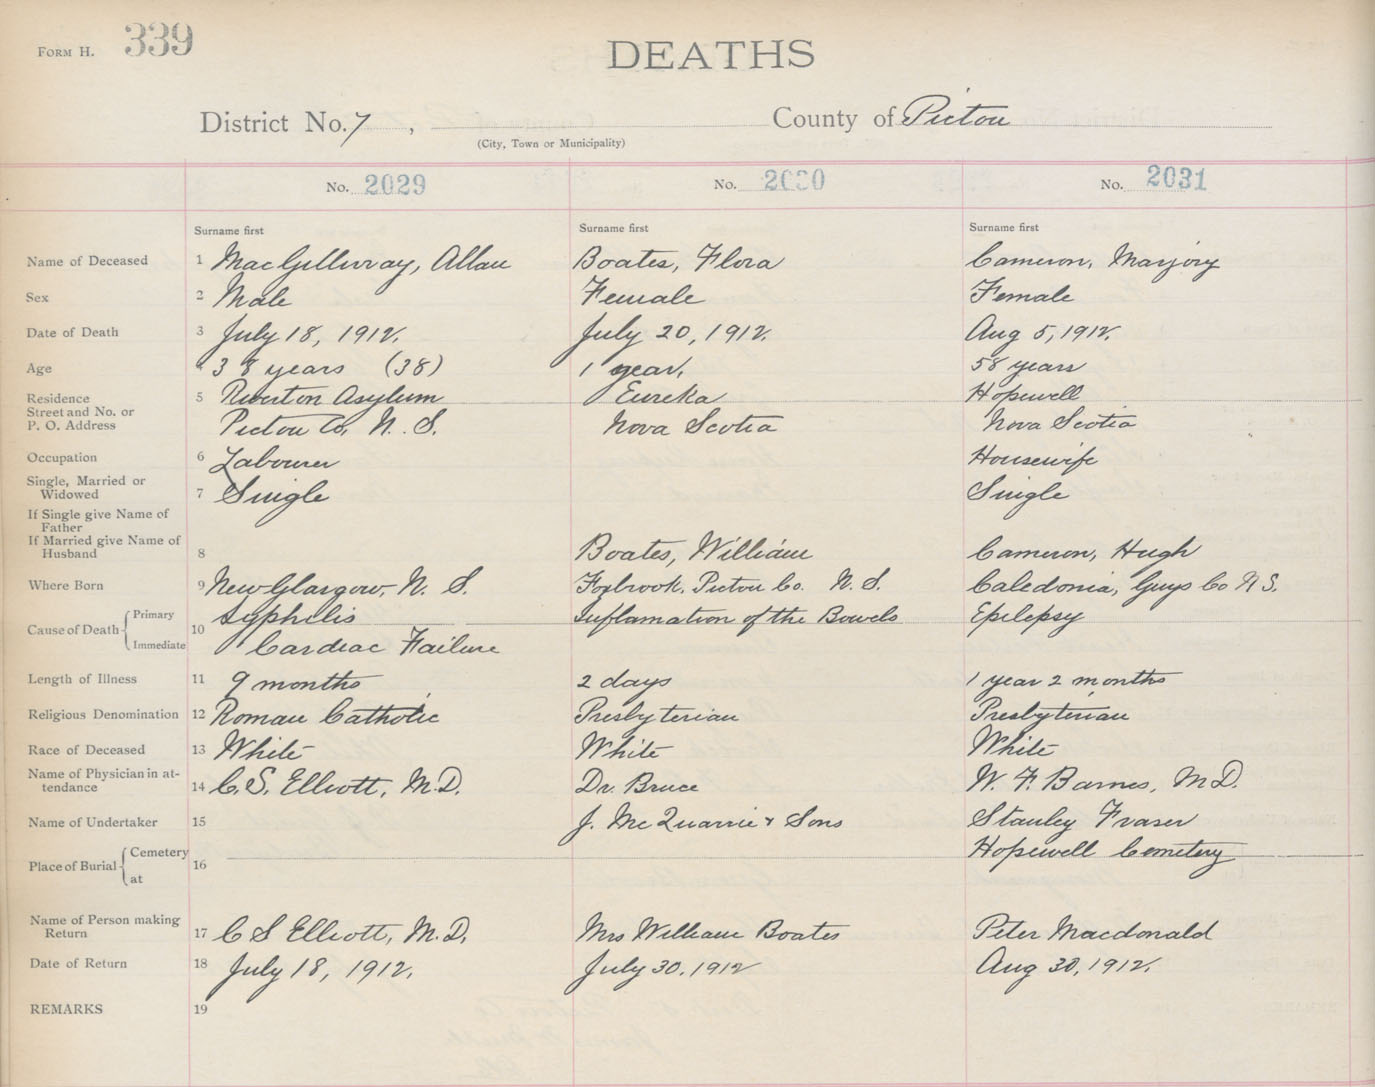 FORM H. 339
DEATHS
District No. 7 , County of Pictou
(City, Town or Municipality)
No. 2029 No. 2030 No. 2031
Surname first Surname first Surname first
Name of Deceased 1 MacGillivray, Allan Boates, Flora Cameron, Marjory
Sex 2 Male Female Female
Date of Death 3 July 18, 1912. July 20, 1912. Aug 5, 1912.
Age 4 38 years (38) 1 year. 58 years
Residence 5 Riverton Asylum Eureka Hopewell
Street and No. or
P. O. Address Pictou Co, N. S. Nova Scotia Nova Scotia
Occupation 6 Labourer Housewife
Single, Married or
Widowed 7 Single Single
If Single give Name of
Father
If Married give Name of
Husband 8 Boates, William Cameron, Hugh
Where Born 9 New Glasgow, N. S. Foxbrook, Pictou Co. N. S. Caledonia, Guys Co N S.
Cause of Death Primary 10 Syphilis Inflamation of the Bowels Epilepsy
Immediate Cardiac Failure
Length of Illness 11 9 months 2 days 1 year 2 months
Religious Denomination 12 Roman Catholic Presbyterian Presbyterian
Race of Deceased 13 White White White
Name of Physician in at-
tendance 14 C. S. Elliott, M.D. Dr. Bruce W. F. Barnes, M D.
Name of Undertaker 15 J. McQuarrie & Sons Stanley Fraser
Place of Burial Cemetery 16 Hopewell Cemetery
at
Name of Person making
Return 17 C S Elliott, M.D. Mrs William Boates Peter Macdonald
Date of Return 18 July 18, 1912. July 30, 1912 Aug 30, 1912.
REMARKS 19